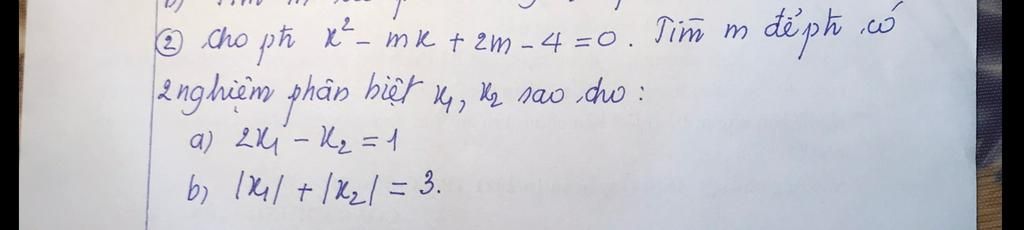 ② Cho pt x² - mx + 2m - 4 = 0. Tìm m để pt có
2 nghiệm phân biệt x₁, x₂ sao cho :
a) 2x₁ - x₂ = 1
b) |x₁| + |x₂| = 3.